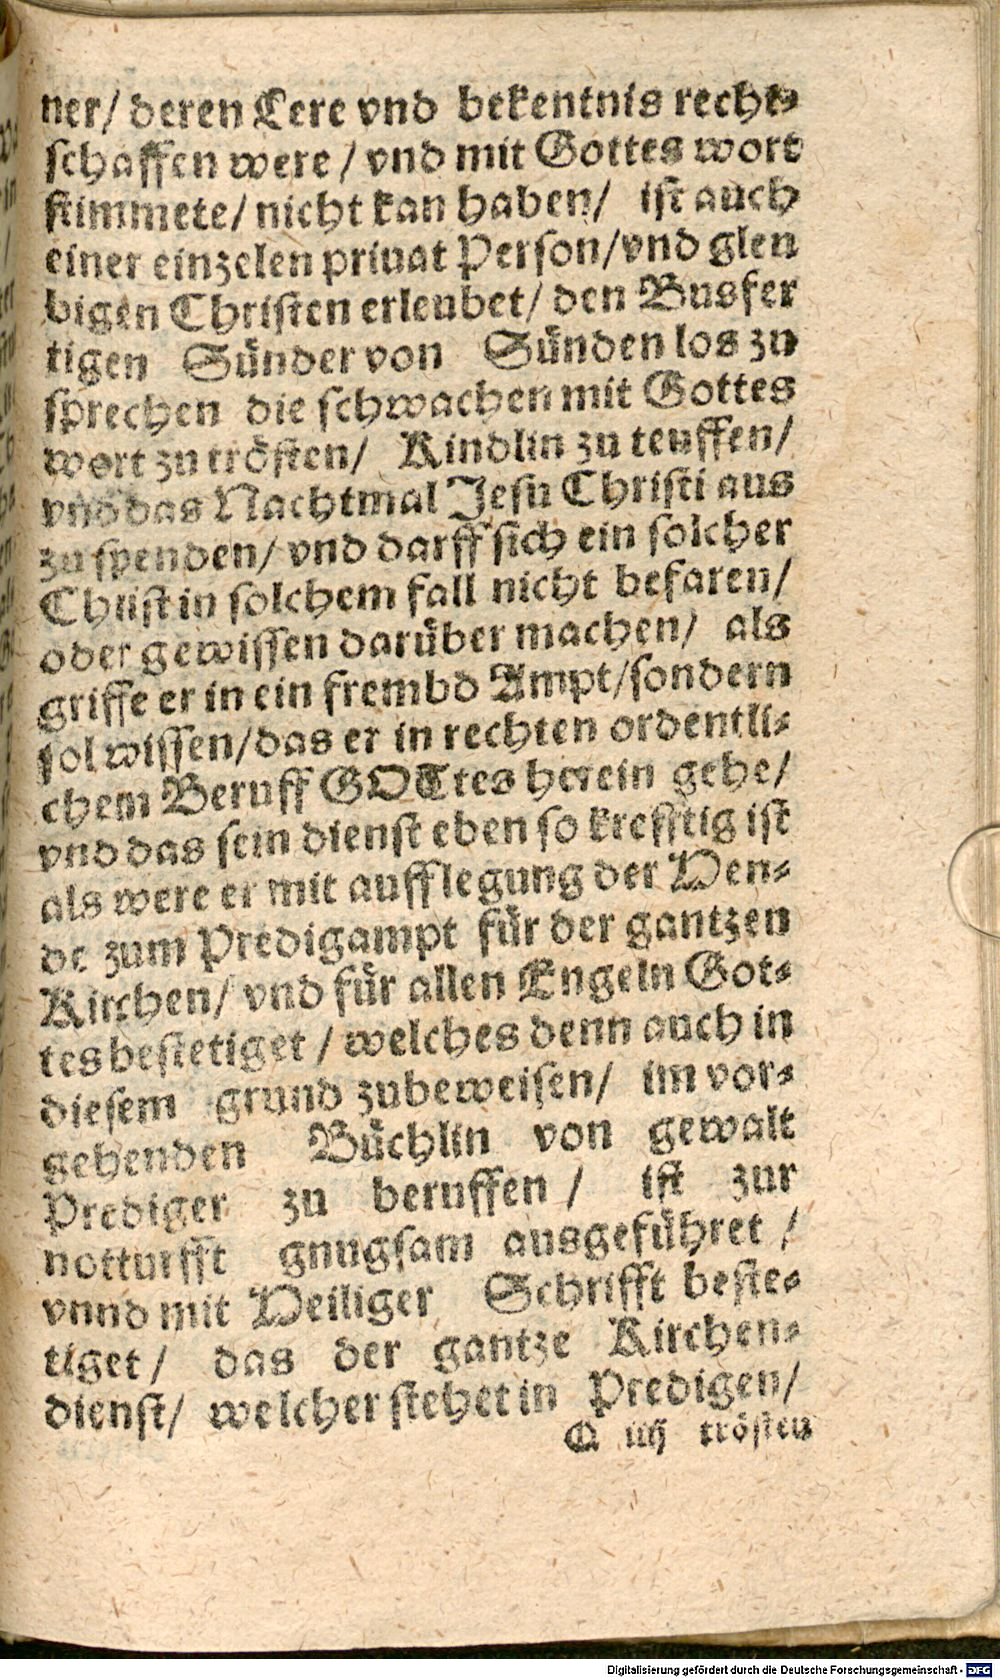 ner/ deren Lere vnd bekentnis recht-
schaffen were / vnd mit Gottes wort
stimmete/ nicht kan haben/ ist auch
einer einzelen priuat Person/vnd gleu
bigen Christen erleubet/ den Busfer
tigen Sünder von Sünden los zu
sprechen die schwachen mit Gottes
wort zu trösten/ Kindlin zu teuffen/
vnd das Nachtmal Jesu Christi aus
zu spenden/ vnd darff sich ein solcher
Christ in solchem fall nicht befaren/
oder gewissen darüber machen/ als
griffe er in ein frembd Ampt/sondern
sol wissen/das er in rechten ordentli-
chem Beruff GOTtes herein gehe/
vnd das sein dienst eben so krefftig ist
als were er mit aufflegung der Hen-
de zum Predigampt für der gantzen
Kirchen/ vnd für allen Engeln Got-
tes bestetiget / welches denn auch in
diesem grund zubeweisen/ im vor-
gehenden Büchlin von gewalt
Prediger zu beruffen / ist zur
notturfft gnugsam ausgeführet /
vnnd mit Heiliger Schrifft beste-
tiget/ das der gantze Kirchen-
dienst/ welcher stehet in Predigen/
Q iiij trösten
Digitalisierung gefördert durch die Deutsche Forschungsgemeinschaft - DFG